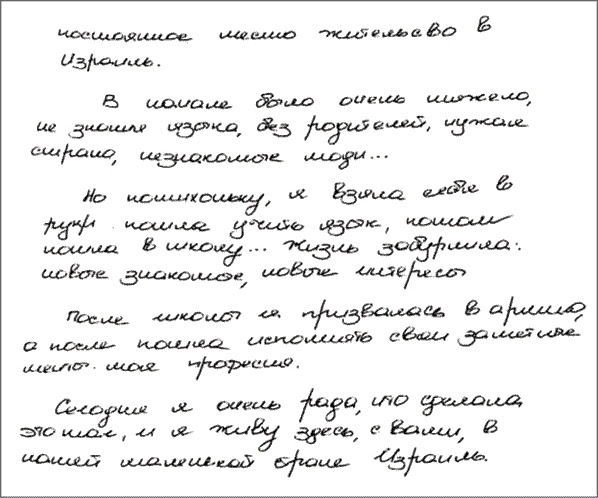 постоянное место жительсво в
Израиль.
В начале было очень тяжело,
не знание языка, без родителей, чужая
страна, незнакомые люди...
Но потихоньку, я взяла себя в
руки пошла учить язык, потом
пошла в школу... жизнь забурлила:
новые знакомые, новые интересы
После школы я призвалась в армию,
а после пошла исполнять свои заметные
мечты. моя професия.
Сегодня я очень рада, что сделала
это шаг, и я живу здесь, с вами, в
нашей маленькой стране Израиль.